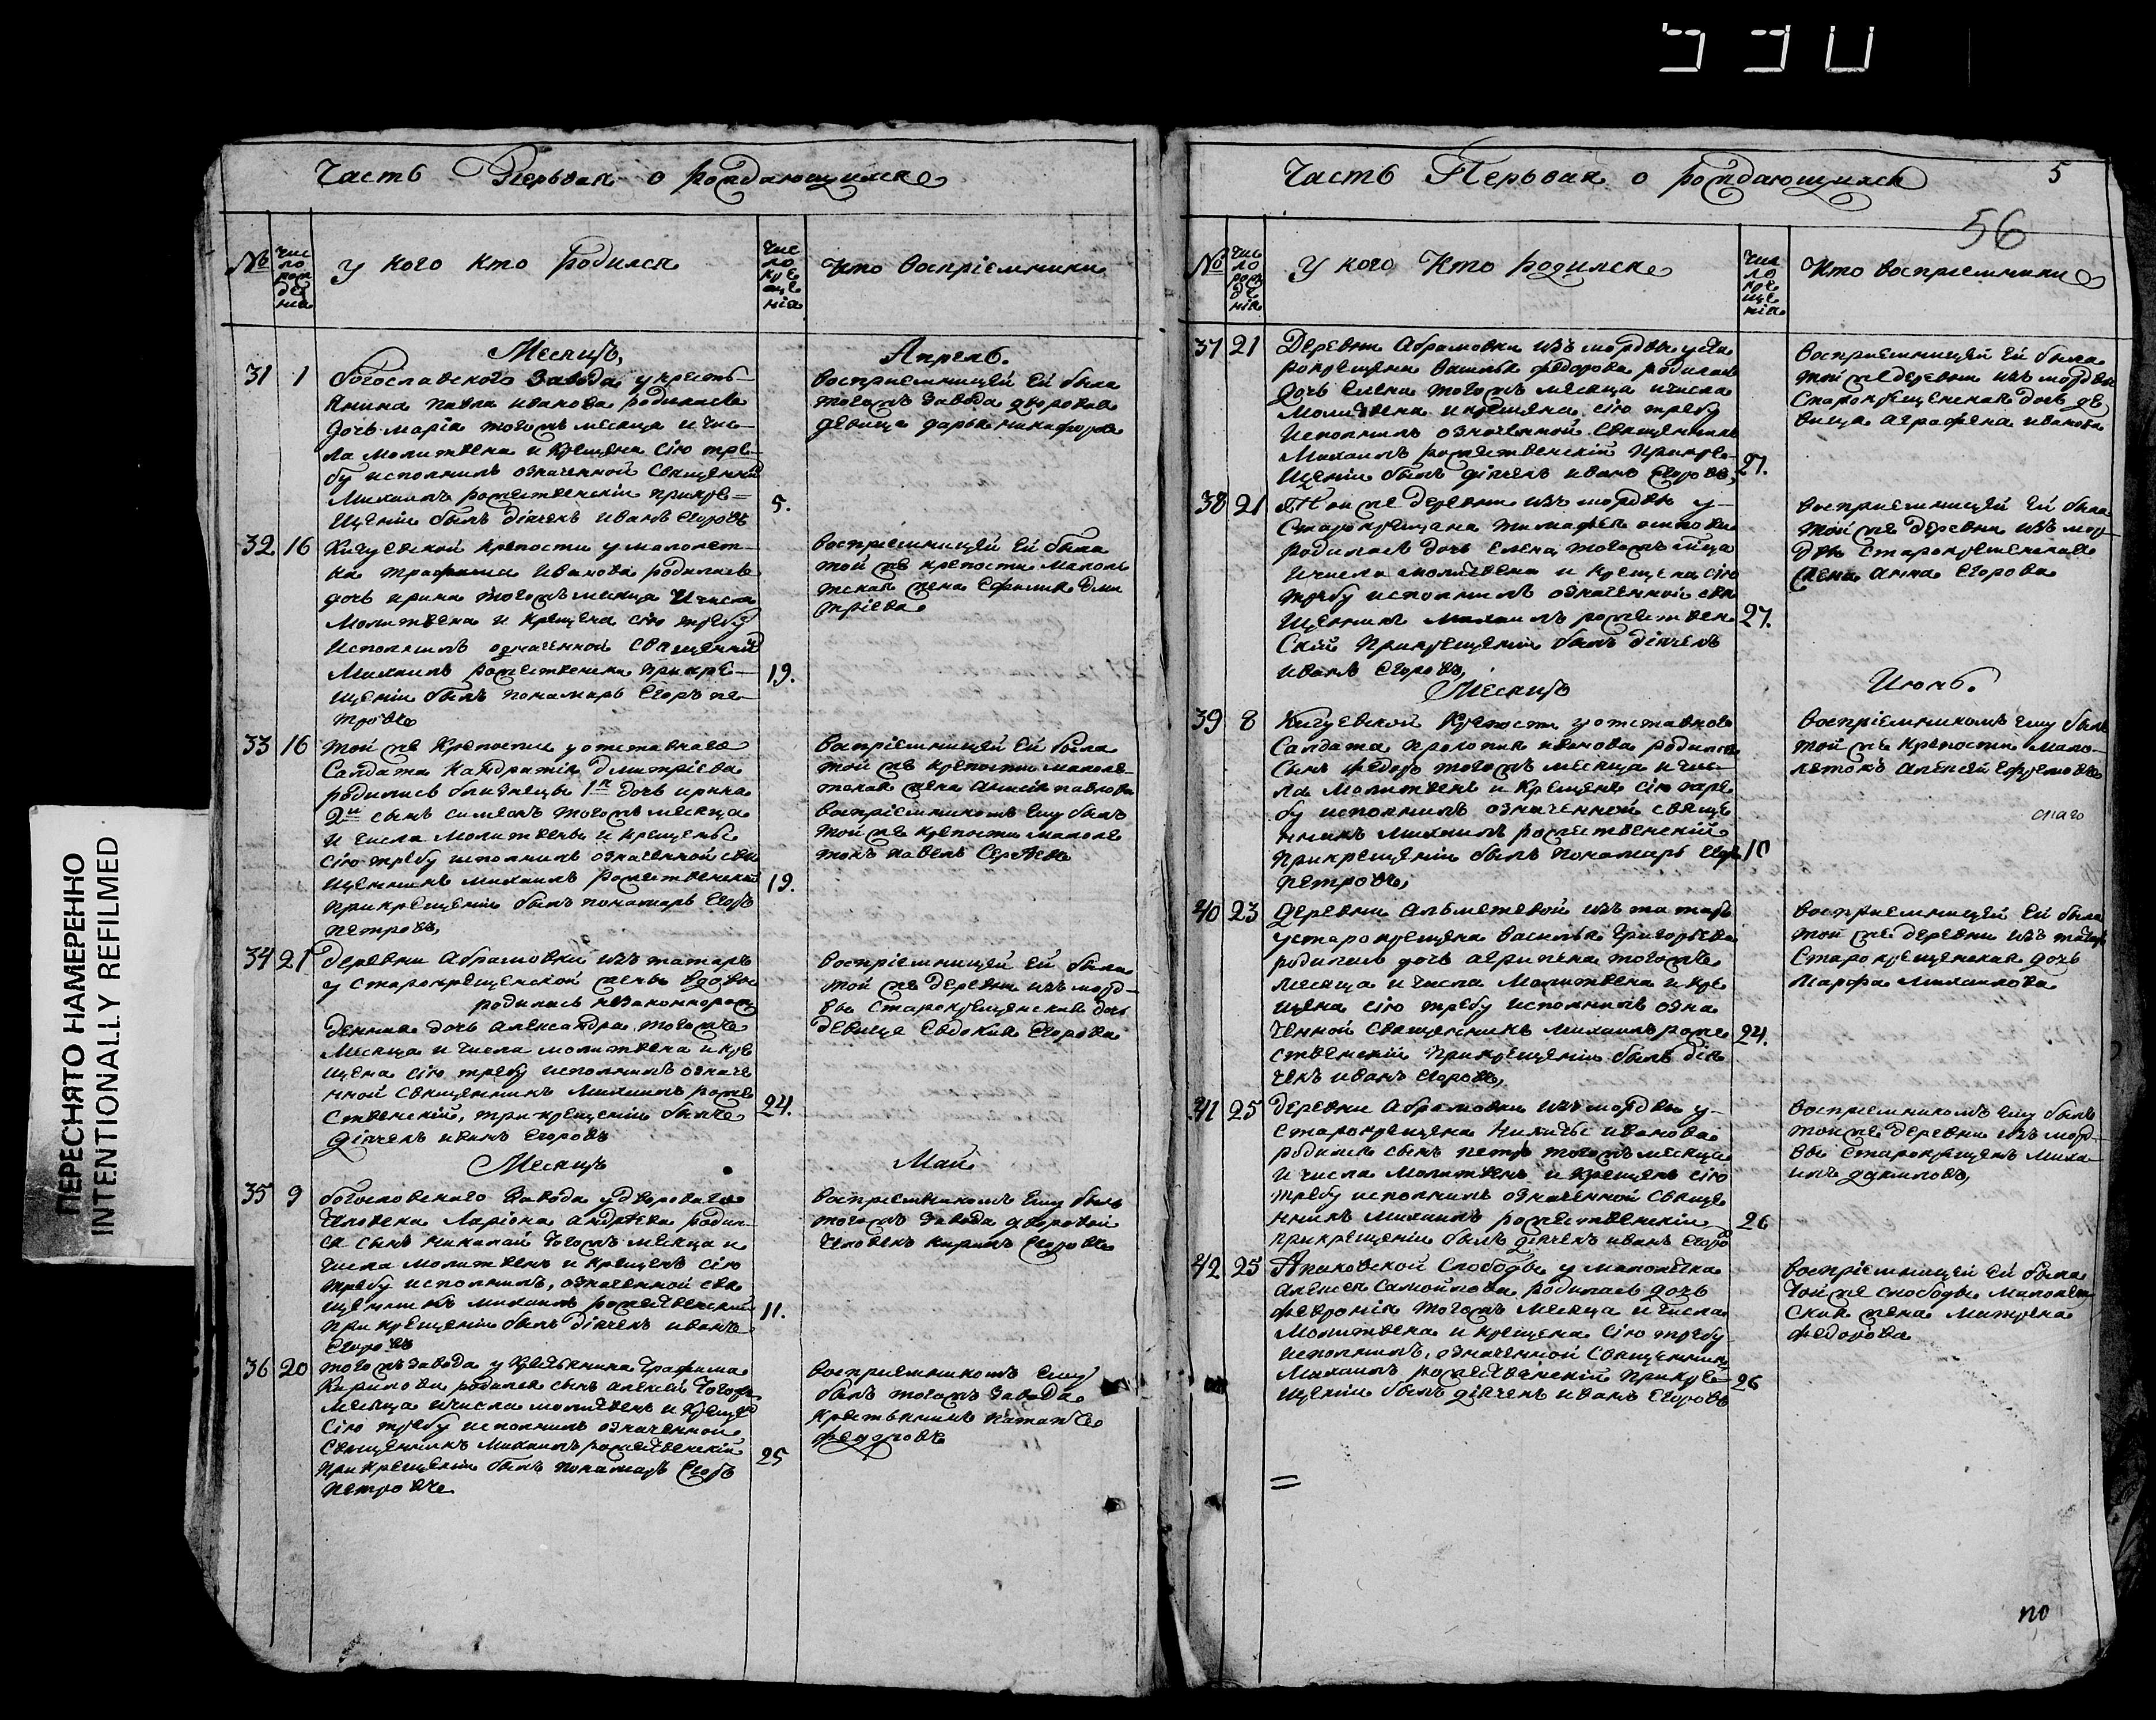 Часть Первая о рождающихся
№
Чис
ло
рож
де
нія
У кого кто родился
Чис
ло
кре
ще
нія
Кто воспріемники
Месяцъ
Апрель
31 1 богославского завода у кресть-
янина павла иванова родилась
дочь марія тогожъ месяца и чис-
ла молитвена и крещена сію тре-
бу исполнилъ означенной священникъ
Михаилъ рожественскіи прикре-
щеніи былъ дьячекъ иванъ Егоровъ
5.
восприемницей ей была
тогожъ завода дворовая
девица дарья никифорова
32 16 Кичуевской крепости у малолет-
ка трафима Иванова родилась
дочь ирина тогожъ месяца и числа
молитвена и крещена сію требу
исполнилъ означенной священникъ
Михаилъ рожественски прикре-
щеніи былъ понамарь Егоръ пе-
тровъ
19.
воспріемницей ей была
той же крепости малоле
тская жена Ефимия Дми
тріева
33 16 той же крепости у отставнаго
Салдата Кандратія дмитріева
родились близнецы 1я дочь ирина
2й сынъ симеонъ тогожъ месяца
и числа молитвены и крещены
сію требу исполнилъ означенной свя
щенникъ михаилъ рожественской
прикрещеніи былъ понамарь Егоръ
петровъ
19.
воспріемницей ей была
той же крепости малоле-
тская жена анисія павлова
воспріемникомъ ему былъ
той же крепости малоле
токъ павелъ Сергеевъ
34 21 деревни Абрамовки изъ татаръ
у старокрещенской жены вдовы
родилась незаконнорож
денная дочь александра тогожъ
месяца и числа молитвена и кре
щена сію требу исполнилъ означе
нной священникъ Михаилъ роже
ственскій, прикрещеніи былъ
дьячекъ иванъ Егоровъ
24.
воспріемницей ей была
той же деревни изъ морд-
вы старокрещенская дочь
девица Евдокия Егорова
Месяцъ
Май
35 9 богословского завода у двороваго
человека Ларіона андреева родил-
ся сынъ николай тогожъ месяца и
числа молитвенъ и крещенъ сію
требу исполнилъ, означенной свя
щенникъ михаилъ рожественскій
прикрещеніи былъ дьячекъ иванъ
Егоровъ
11.
воспріемникомъ ему былъ
тогожъ завода дворовой
человекъ кирилъ Егоровъ
36 20 тогожъ завода у крестьянина трафима
Кирилова родился сынъ алексей тогожъ
месяца и числа молитвенъ и крещенъ
сію требу исполнилъ означенной
священникъ михаилъ рожественскій
прикрещеніи былъ понамарь Егоръ
петровъ
25
восприемникомъ ему
былъ тогожъ завода
крестьянинъ
федоровъ
Часть Первая о рождающихся
5
56
№
Чис
ло
рож
де
нія
У кого Кто родился
Чис
ло
кре
ще
нія
Кто восприемники
37 21 Деревни Абрамовки изъ мордвы у ста
рокрещена василья федорова родилась
дочь елена тогожъ месяца и числа
молитвена и крещена, сію требу
исполнилъ означенной священникъ
Михаилъ рожественскій прикре-
щеніи былъ дьячекъ иванъ Егоровъ
27.
восприемницей ей была
той же деревни изъ мордвы
старокрещенская дочь де
вица аграфена иванова
38 21 Той же деревни изъ мордвы у
старокрещена тимафея осипова
родилась дочь елена, тогожъ м̃ца
и числа молитвена и крещена сію
требу исполнилъ означенной свя
щенникъ михаилъ рожествен
скій прикрещеніи былъ дьячекъ
иванъ Егоровъ
27.
восприемницей ей была
той же деревни изъ мор-
двы старокрещенская
жена анна Егорова
Месяцъ
Июнь
39 8 Кичуевской крепости у отставного
Салдата прокопия иванова родился
сынъ федоръ тогожъ месяца и чис-
ла молитвенъ и крещенъ сію тре
бу исполнилъ означенной свяще
нникъ михаилъ рожественскій
прикрещеніи былъ понамарь Егоръ
петровъ
10
воспріемникомъ ему былъ
той же крепости мало-
летокъ алексей ефремовъ
40 23 деревни альметевой изъ татаръ
у старокрещена василья григорьева
родилась дочь агрипена тогожъ
месяца и числа молитвена и кре
щена сію требу исполнилъ озна
ченной священникъ михаилъ роже
ственскій прикрещеніи былъ дья
чекъ иванъ Егоровъ
24.
восприемницей ей была
той же деревни изъ татаръ
старокрещенская дочь
марфа михаилова
41 25 деревни абрамовки изъ мордвы у
старокрещена никиты иванова
родился сынъ петръ тогожъ месяца
и числа молитвенъ и крещенъ сію
требу исполнилъ означенной свяще
нникъ михаилъ рожественскій
прикрещеніи былъ дьячекъ иванъ Егоровъ
26
восприемникомъ ему былъ
той же деревни изъ морд-
вы старокрещенъ миха-
илъ даниловъ
42 25 Апаковской слободы у малолетка
алексея самойлова родилась дочь
февронія тогожъ месяца и числа
молитвена и крещена сію требу
исполнилъ, означенной священникъ
Михаилъ рожественскій прикре-
щеніи былъ дьячекъ иванъ Егоровъ
26
воспріемницей ей была
той же слободы малолет
ская жена матрена
федорова
по
ПЕРЕСНЯТО НАМЕРЕННО
INTENTIONALLY REFILMED